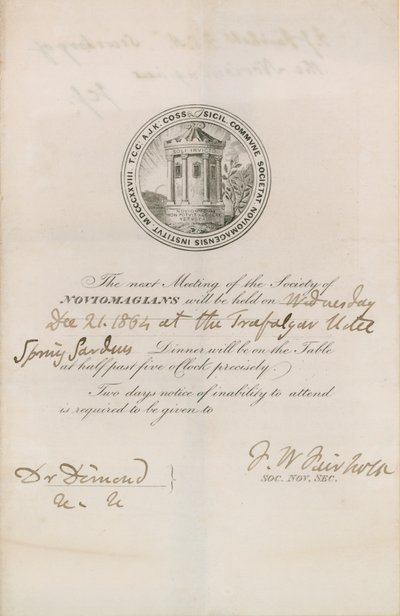 SIGIL. COMMVNE SOCIETAT NOVIOMAGENSIS INSTITVT MDCCCXXVIII T.C.C. A.J.K. COSS.
SOLI INVICTO
NOVIOMAGVS
The next Meeting of the Society of
NOVIOMAGIANS will be held on Wednesday
Dec 21. 1864 at the Trafalgar Hotel
Spring Gardens Dinner will be on the Table
at half past five o'Clock precisely.
Two days notice of inability to attend
is required to be given to
F. W Fairholt
SOC. NOV. SEC.
Dr Diamond